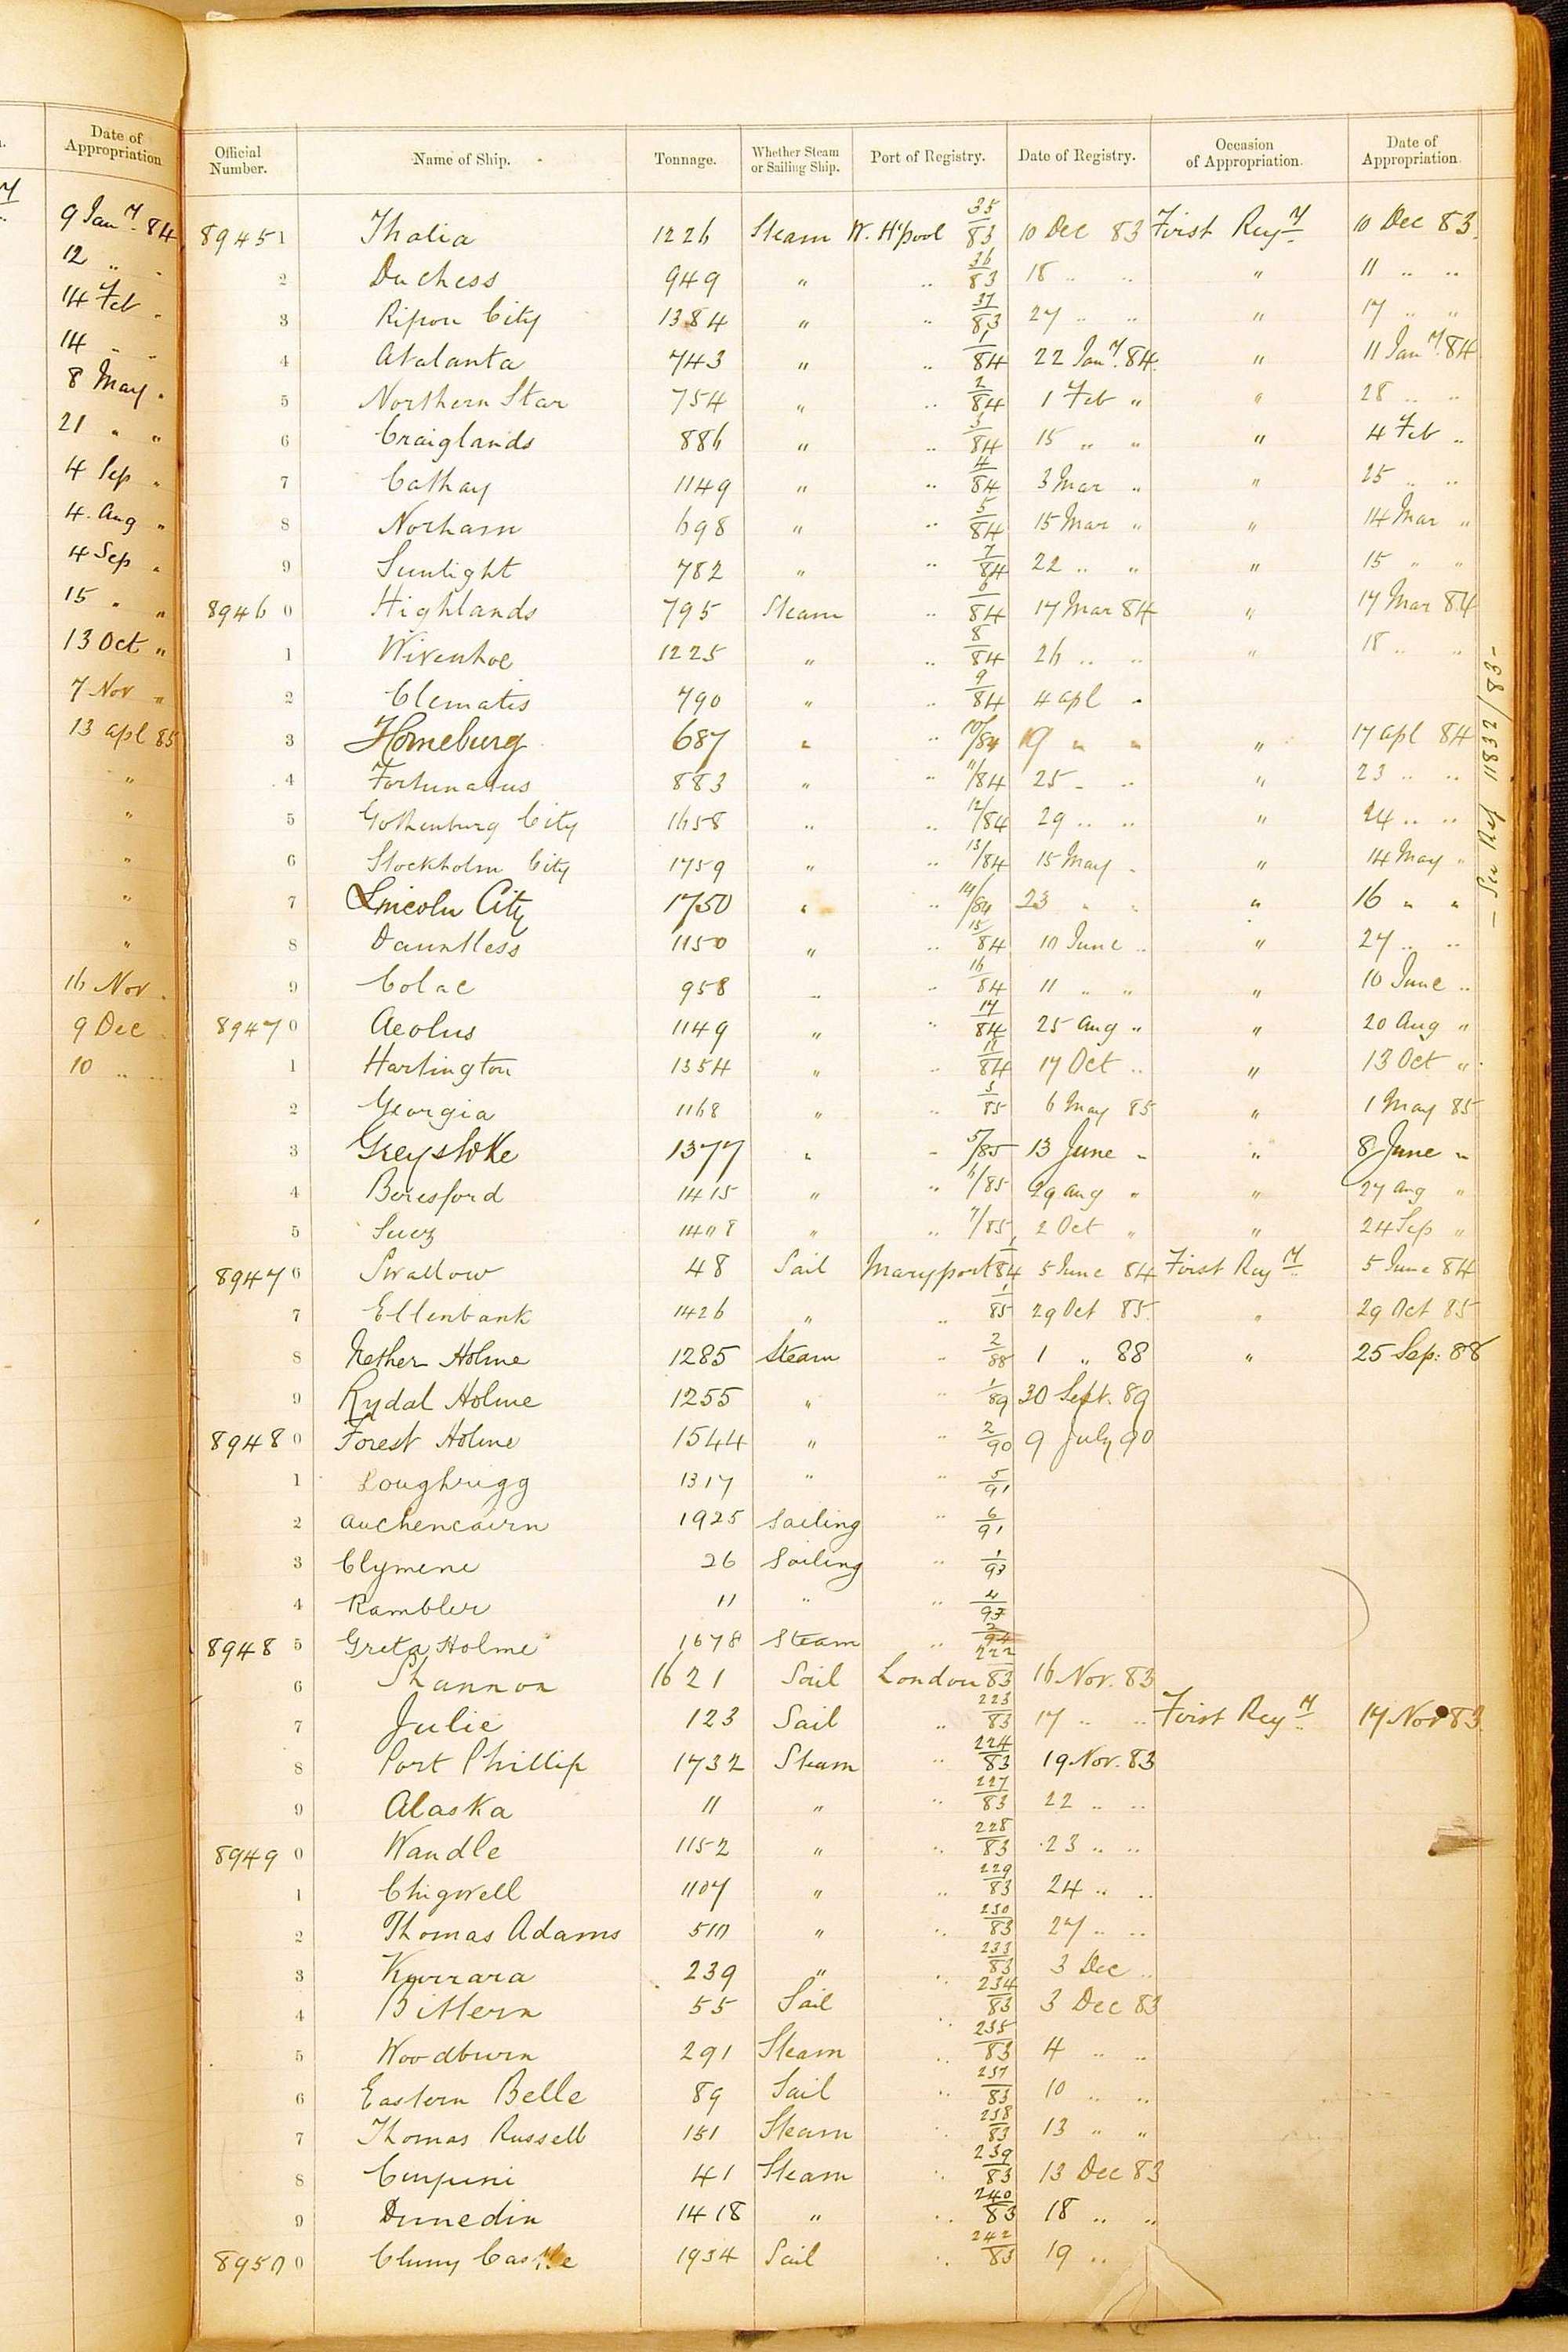 Date of Appropriation
9 Jany. 84
12 .. .
14 Feb .
14 .. ..
8 May .
21 " "
4 Sep .
4. Aug "
4 Sep .
15 . "
13 Oct "
7 Nov "
13 apl 85
"
"
"
"
"
16 Nov .
9 Dec
10 .. ..
Official Number. Name of Ship. Tonnage. Whether Steam or Sailing Ship. Port of Registry. Date of Registry. Occasion of Appropriation. Date of Appropriation.
89451 Thalia 1226 Steam W. H'pool 35/83 10 Dec 83 First Regy 10 Dec 83
2 Duchess 949 " .. 36/83 18 .. .. " 11 .. ..
3 Ripon City 1384 " .. 37/83 27 .. .. " 17 .. ..
4 Atalanta 743 " .. 1/84 22 Jany. 84 " 11 Jany. 84
5 Northern Star 754 " .. 2/84 1 Feb " " 28 .. ..
6 Craiglands 886 " .. 3/84 15 .. " " 4 Feb ..
7 Cathay 1149 " .. 4/84 3 Mar .. " 25 .. ..
8 Norham 698 " .. 5/84 15 Mar " " 14 Mar "
9 Sunlight 782 " .. 7/84 22 .. " " 15 " "
89460 Highlands 795 Steam .. 6/84 17 Mar 84 " 17 Mar 84
1 Wivenhoe 1225 " .. 8/84 26 .. .. " 18 .. "
2 Clematis 790 " .. 9/84 4 apl "
3 Horneburg 687 " .. 10/84 19 " " " 17 apl 84
4 Fortunatus 883 " .. 11/84 25 .. .. " 23 .. ..
5 Gothenburg City 1658 .. .. 12/84 29 .. .. " 24 .. ..
6 Stockholm City 1759 " .. 13/84 15 May . " 14 May "
7 Lincoln City 1750 " .. 14/84 23 " " " 16 " "
8 Dauntless 1150 " .. 15/84 10 June .. " 27 .. ..
9 Colac 958 .. .. 16/84 11 .. " " 10 June ..
89470 Aeolus 1149 " .. 17/84 25 Aug " " 20 Aug "
1 Hartington 1354 " .. 18/84 17 Oct .. " 13 Oct "
2 Georgia 1168 " .. 3/85 6 May 85 " 1 May 85
3 Greystoke 1377 " .. 5/85 13 June " " 8 June "
4 Beresford 1415 " .. 6/85 29 Aug " " 27 Aug "
5 Suez 1408 " .. 7/85 2 Oct " " 24 Sep "
89476 Swallow 48 Sail Maryport 1/84 5 June 84 First Regy 5 June 84
7 Ellenbank 1426 " .. 1/85 29 Oct 85 " 29 Oct 85
8 Nether Holme 1285 Steam .. 2/88 1 .. 88 " 25 Sep: 88
9 Rydal Holme 1255 " .. 1/89 30 Sept. 89
89480 Forest Holme 1544 " .. 2/90 9 July 90
1 Loughrigg 1317 " .. 5/91
2 Auchencairn 1925 Sailing .. 6/91
3 Clymene 26 Sailing .. 1/93
4 Rambler 11 " .. 4/93
89485 Greta Holme 1678 Steam .. 2/94
6 Shannon 1621 Sail London 222/83 16 Nov. 83
7 Julie 123 Sail " 223/83 17 .. .. First Regy 17 Nov 83
8 Port Phillip 1732 Steam .. 224/83 19 Nov. 83
9 Alaska 11 " .. 227/83 22 .. ..
89490 Wandle 1152 " .. 228/83 23 .. ..
1 Chigwell 1107 " .. 229/83 24 .. ..
2 Thomas Adams 510 " .. 230/83 27 .. ..
3 Kurrara 239 " .. 233/83 3 Dec ..
4 Bittern 55 Sail .. 234/83 3 Dec 83
5 Woodburn 291 Steam .. 235/83 4 .. ..
6 Eastern Belle 89 Sail .. 237/83 10 .. ..
7 Thomas Russell 151 Steam .. 238/83 13 " "
8 41 Steam .. 239/83 13 Dec 83
9 Dunedin 1418 " .. 240/83 18 .. ..
89500 Cluny Castle 1934 Sail .. 242/83 19 ..
11832/83 -